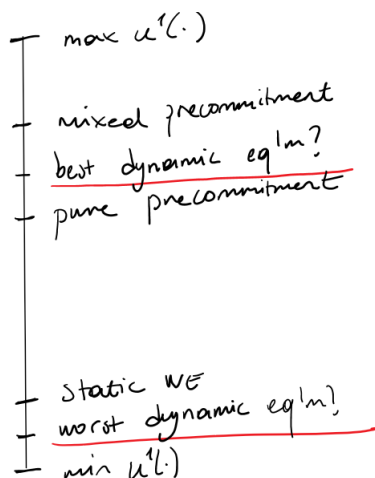 max u¹(·)
mixed precommitment
best dynamic eq'm?
pure precommitment
static NE
worst dynamic eq'm?
min u¹(·)